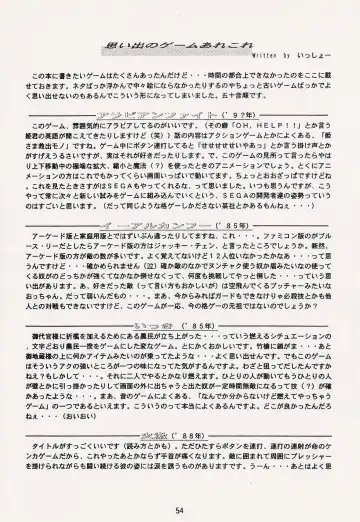 思い出のゲームあれこれ
Written by いっしょー
この本に書きたいゲームはたくさんあったんだけど・・・時間の都合上できなかったのをここに載
せておきます。ネタばっか浮かんで中々絵にならなかったりするのやちょっと古いゲームばっかでよ
く思い出せないのもあるんでこういう形になってしまいました。五十音順です。
アラビアンファイト （'９２年）
このゲーム、雰囲気的にアラビアしてるのがいいです。（その癖「ＯＨ，ＨＥＬＰ！！」とか言う
姫君の英語が聞こえてきたりしますけど（笑））話の内容はアクションゲームとかによくある、「姫
さま救出モノ」ですね。ゲーム中にボタン連打してると「せせせせせいやあっ」とか言う掛け声とか
がすげえうるさいですが、実はそれが好きだったりします。で、このゲームの見所って言ったらやは
り上下移動中の極端な拡大、縮小と魔法（？）を使ったときのアニメーションでしょう。とくにアニ
メーションの方はこれでもかってくらい画面いっぱいで動いてます。ちょっとおおざっぱですけどね
。これを見たときさすがはＳＥＧＡもやってくれるな、って思いました。いつも思うんですが、こう
やって常に次々と新しい試みをゲームに組み込んでいくという、ＳＥＧＡの開発者達の姿勢っていう
のはすごいと思います。（だって同じような格ゲーしかださない某社とかあるもんねえ。）
イーアルカンフー （'８５年）
アーケード版と家庭用版とではずいぶん違ったりしてますね、これ・・・。ファミコン版のがブル
ース・リーだとしたらアーケード版の方はジャッキー・チェン、と言ったところでしょうか。断然、
アーケード版の方が敵の数が多いです。よく覚えてないけど１２人位いなかったかなあ・・・って思
うんですけど・・・確かめられません（２）確か敵のなかでヌンチャク使う奴か盾みたいなの使って
る奴がのどっちかが強くてなかなか倒せなくって、何度も挑戦してやっと倒した・・・っていう思い
出があります。あ、好きだった敵（って言い方もおかしいが）は空飛んでくるブッチャーみたいな
おっちゃん。だって弱いんだもの。・・・まあ、今からみればガードもできないけりゃ必殺技とかも他
人との対戦もできないですけど、このゲームが一応、今の格ゲーの元祖ではないのでしょうか？
いっき （'８５年）
御代官様に訴えを加えるためにある農民が立ち上がった・・・っていう燃えるシチュエーションの
、文字どおり農民一揆をゲームにしたゲーム。とにかくおかしいです。竹槍に鎖がま・・・あと
御地蔵様の上に何かアイテムみたいのが乗ってたような・・・よく思い出せんです。でもこのゲーム
はそういうアクの強いところが一つの味になってた気がするんですよ。わざと狙ってだしたんですか
ねえ？もしかして・・・。それに二人でやるとかなり燃えます。ひとりの人が動いてもうひとりの人
が壁とかに引っ掛かったりして画面の外に出ちゃうと出た奴が一定時間無敵になるって技（？）が確
かあったような・・・。まあ、昔のゲームによくある、「なんでか分からないけど燃えてやっちゃう
ゲーム」の一つであるといえます。こういうのって本当によくあるんですよ。どこが良かったんだろ
うねえ・・・（おいおい）
（'８８年）
タイトルがすっごくいいです（読み方とかも）。ただひたすらボタンを連打、連打の連射が命のケ
ンカゲームだから、これやったあとかならず手首が痛くなります。敵に囲まれて周囲にプレッシャー
を掛けられながらも闘い続ける彼の姿には涙を誘うものがありますです。うーん・・・あとはよく思
54